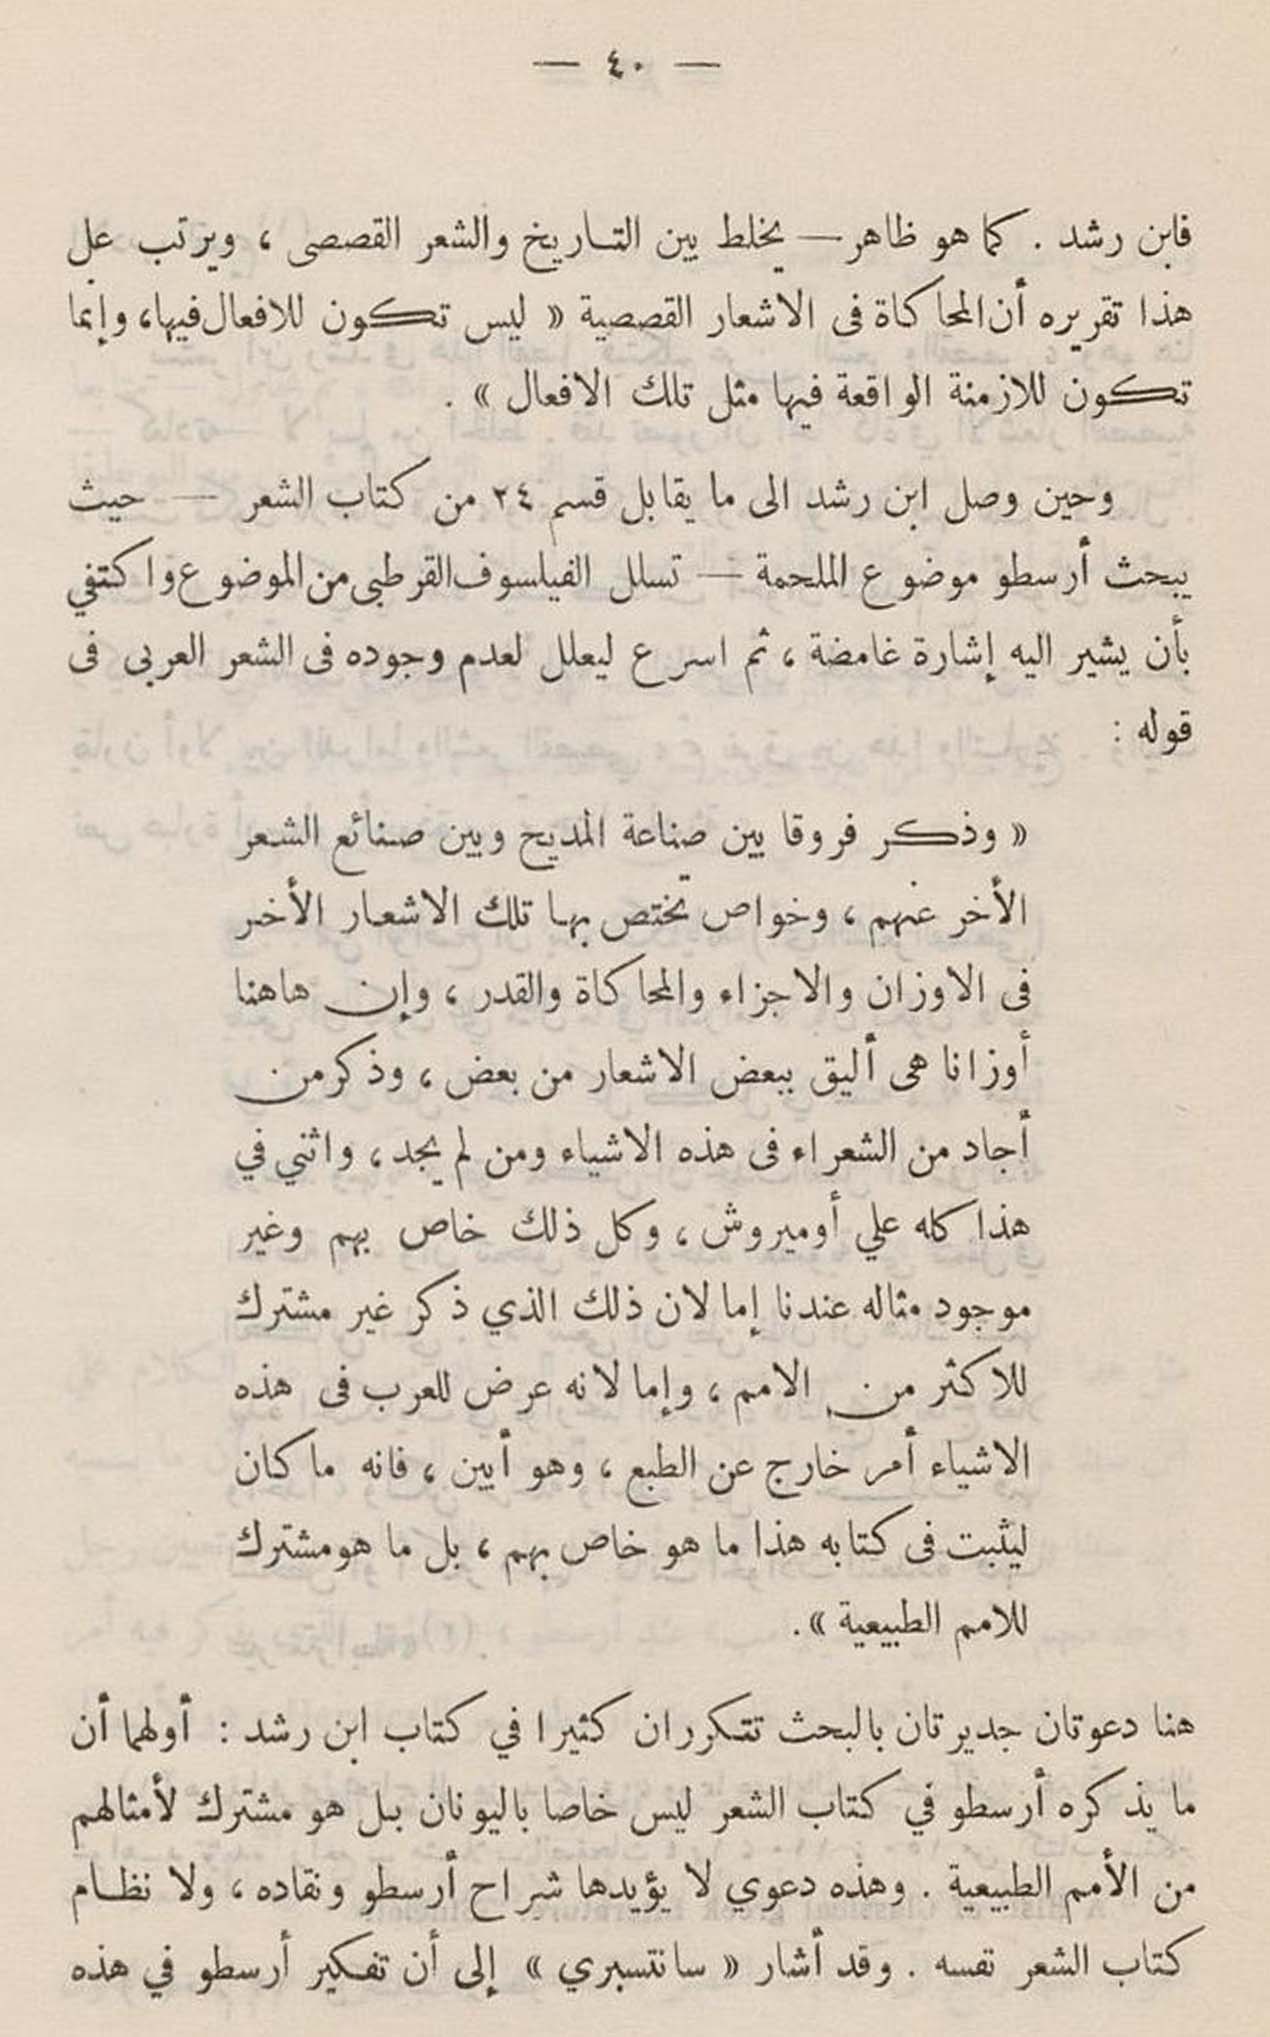 — ٤٠ —
فابن رشد . كما هو ظاهر — يخلط بين التاريخ والشعر القصصى ، ويرتب على
هذا تقريره أن المحاكاة فى الاشعار القصصية « ليس تكون للافعال فيها، وإنما
تكون للازمنة الواقعة فيها مثل تلك الافعال » .
وحين وصل ابن رشد الى ما يقابل قسم ٢٤ من كتاب الشعر — حيث
يبحث أرسطو موضوع الملحمة — تسلل الفيلسوف القرطبى من الموضوع واكتفي
بأن يشير اليه إشارة غامضة ، ثم اسرع ليعلل لعدم وجوده فى الشعر العربى فى
قوله :
« وذكر فروقا بين صناعة المديح وبين صنائع الشعر
الأخر عنهم ، وخواص تختص بها تلك الاشعار الأخر
فى الاوزان والاجزاء والمحاكاة والقدر ، وإن هاهنا
أوزانا هى أليق ببعض الاشعار من بعض ، وذكر من
أجاد من الشعراء فى هذه الاشياء ومن لم يجد ، واثني في
هذا كله علي أوميروش ، وكل ذلك خاص بهم وغير
موجود مثاله عندنا إما لان ذلك الذي ذكر غير مشترك
للاكثر من الامم ، وإما لانه عرض للعرب فى هذه
الاشياء أمر خارج عن الطبع ، وهو أبين ، فانه ما كان
ليثبت فى كتابه هذا ما هو خاص بهم ، بل ما هو مشترك
للامم الطبيعية » .
هنا دعوتان جديرتان بالبحث تتكرران كثيرا في كتاب ابن رشد : أولهما أن
ما يذكره أرسطو في كتاب الشعر ليس خاصا باليونان بل هو مشترك لأمثالهم
من الأمم الطبيعية . وهذه دعوي لا يؤيدها شراح أرسطو ونقاده ، ولا نظام
كتاب الشعر نفسه . وقد أشار « سانتسبري » إلى أن تفكير أرسطو في هذه